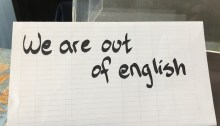 We are out
of english